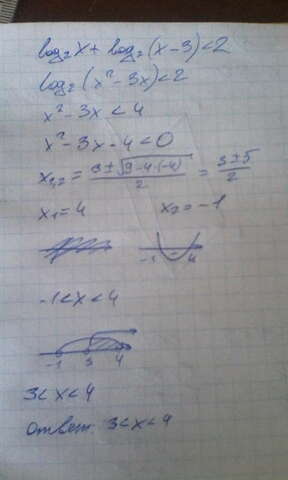 log₂x + log₂(x-3)<2
log₂(x²-3x)<2
x²-3x<4
x²-3x-4<0
x₁,₂ = (3±√(9-4·(-4)))/2 = (3±5)/2
x₁=4 x₂=-1
-1 - 4
-1<x<4
-1 3 4
3<x<4
ответ: 3<x<4